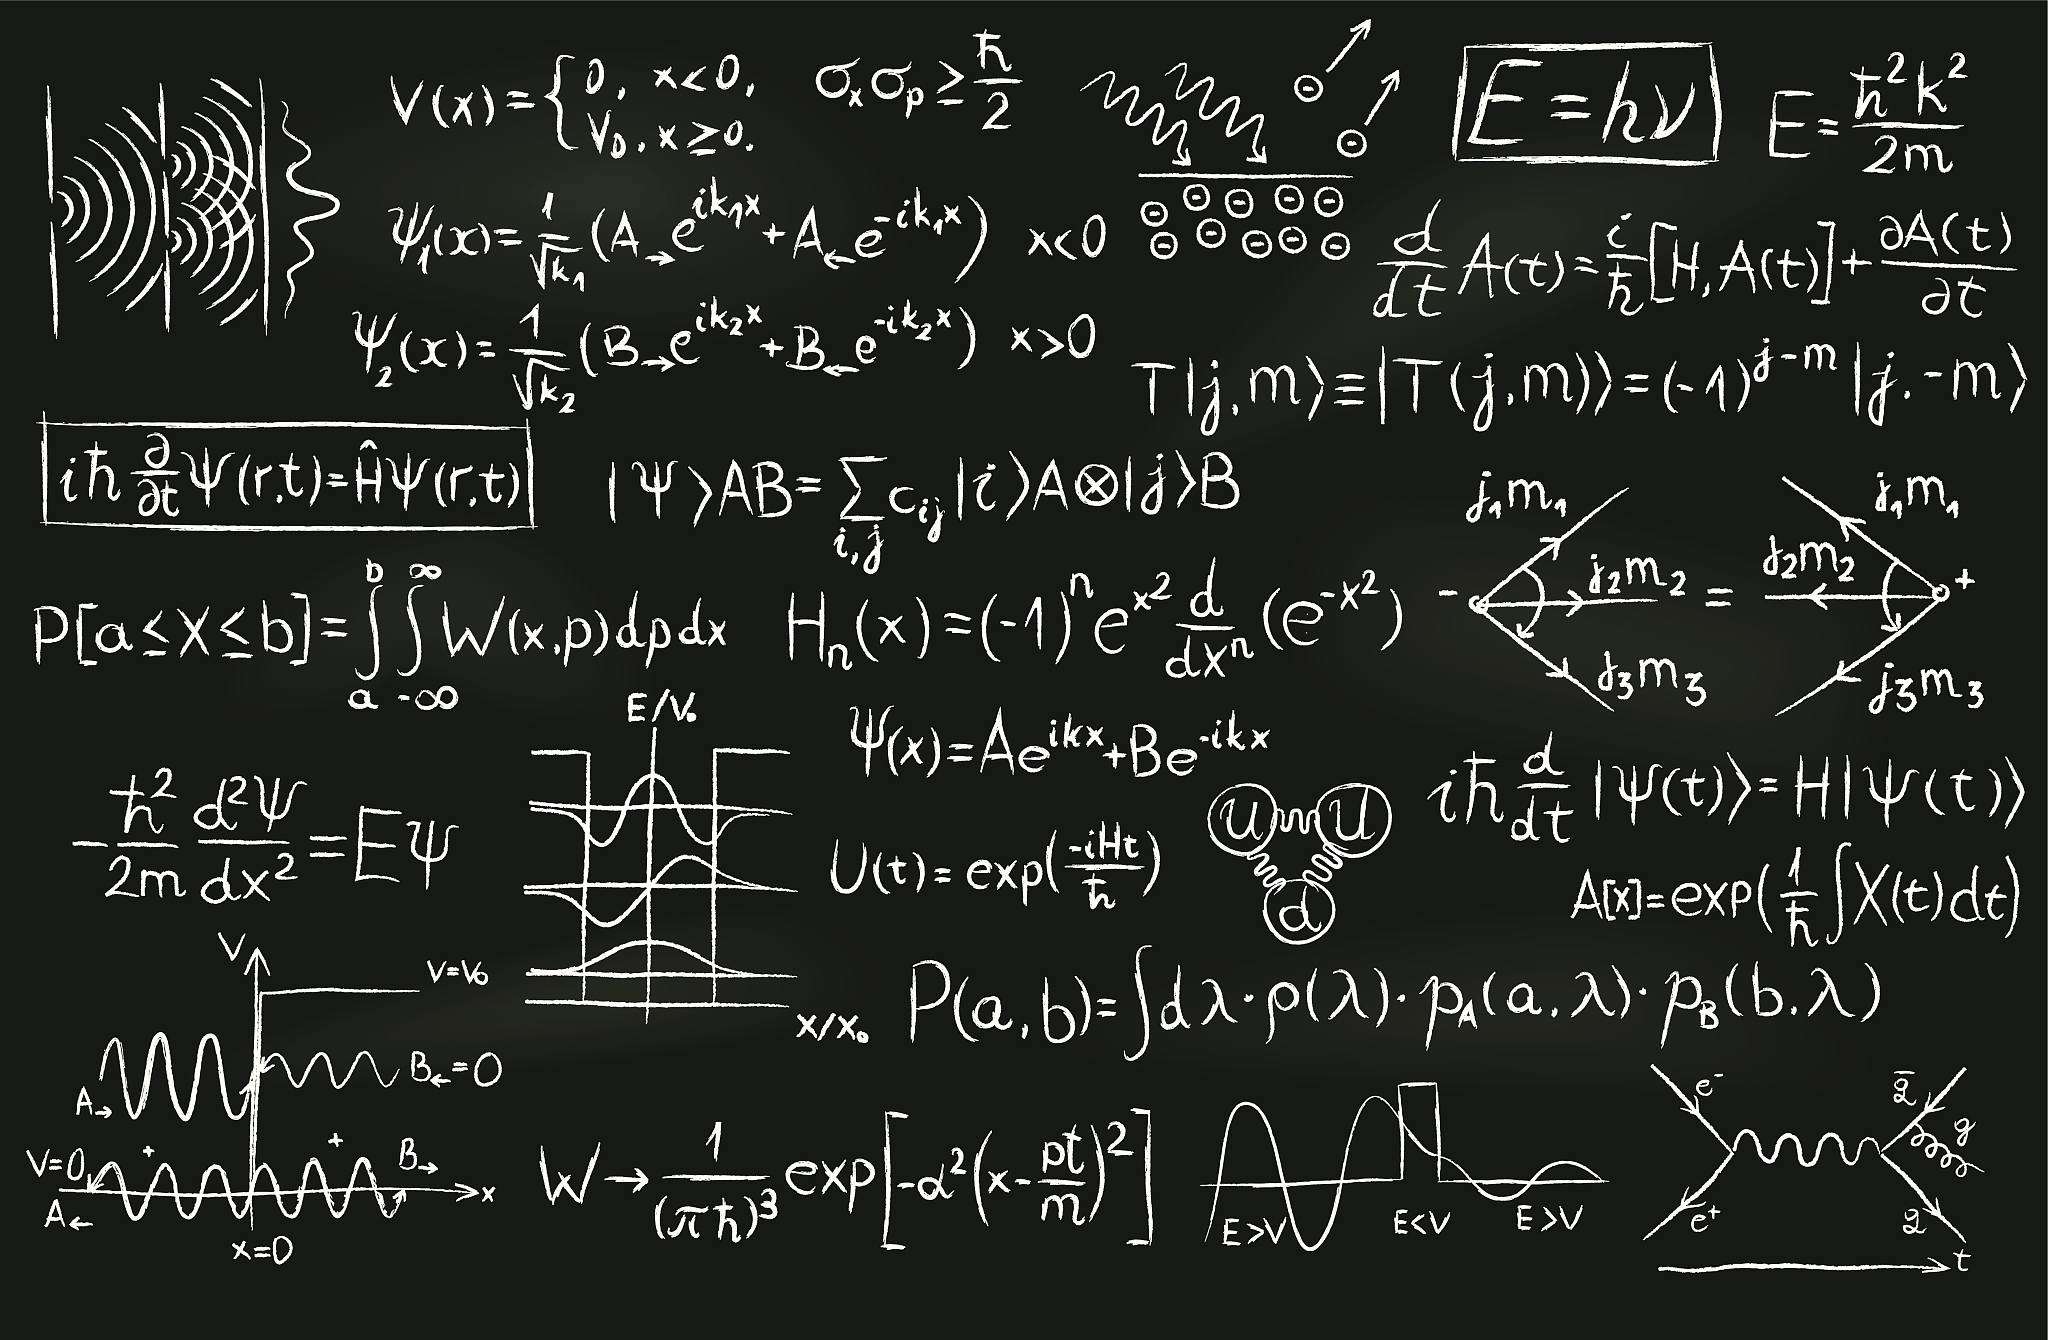 V(x)={0, x<0,
V₀, x≥0.
σₓσₚ≥ħ/2
E=hν
E=ħ²k²/2m
ψ₁(x)=1/√k₁(A→e^{ik₁x}+A←e^{-ik₁x}) x<0
ψ₂(x)=1/√k₂(B→e^{ik₂x}+B←e^{-ik₂x}) x>0
d/dt A(t)=i/ħ[H,A(t)]+∂A(t)/∂t
T|j,m⟩≡|T(j,m)⟩=(-1)^{j-m}|j,-m⟩
iħ ∂/∂t Ψ(r,t)=ĤΨ(r,t)
|Ψ⟩AB=∑_{i,j} c_{ij}|i⟩A⊗|j⟩B
j₁m₁
j₂m₂
j₃m₃
-
=
j₁m₁
j₂m₂
j₃m₃
+
P[a≤X≤b]=∫_a^b ∫_{-∞}^∞ W(x,p)dpdx
Hₙ(x)=(-1)ⁿe^{x²} d/dxⁿ(e^{-x²})
E/V₀
x/x₀
ψ(x)=Ae^{ikx}+Be^{-ikx}
-ħ²/2m d²ψ/dx²=Eψ
U(t)=exp(-iHt/ħ)
u u
d
iħ d/dt |ψ(t)⟩=H|ψ(t)⟩
A[x]=exp(1/ħ ∫X(t)dt)
P(a,b)=∫dλ·ρ(λ)·p_A(a,λ)·p_B(b,λ)
V
V=V₀
A→
B←=0
V=0
+
+
B→
A←
x
x=0
W→1/(πħ)³ exp[-α²(x-pt/m)²]
E>V
E<V
E>V
e⁻
e⁺
q̄
g
q
t